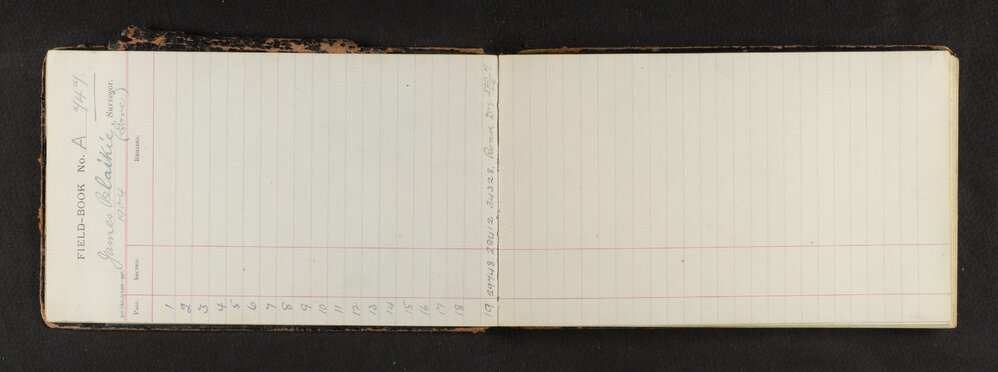 FIELD-BOOK No. A 747.
James Blaikie, Surveyor.
1904. (Gore)
Page. Section. Remarks.
1
2
3
4
5
6
7
8
9
10
11
12
13
14
15
16
17
18
19 29748 29412. 34328. Road Dv